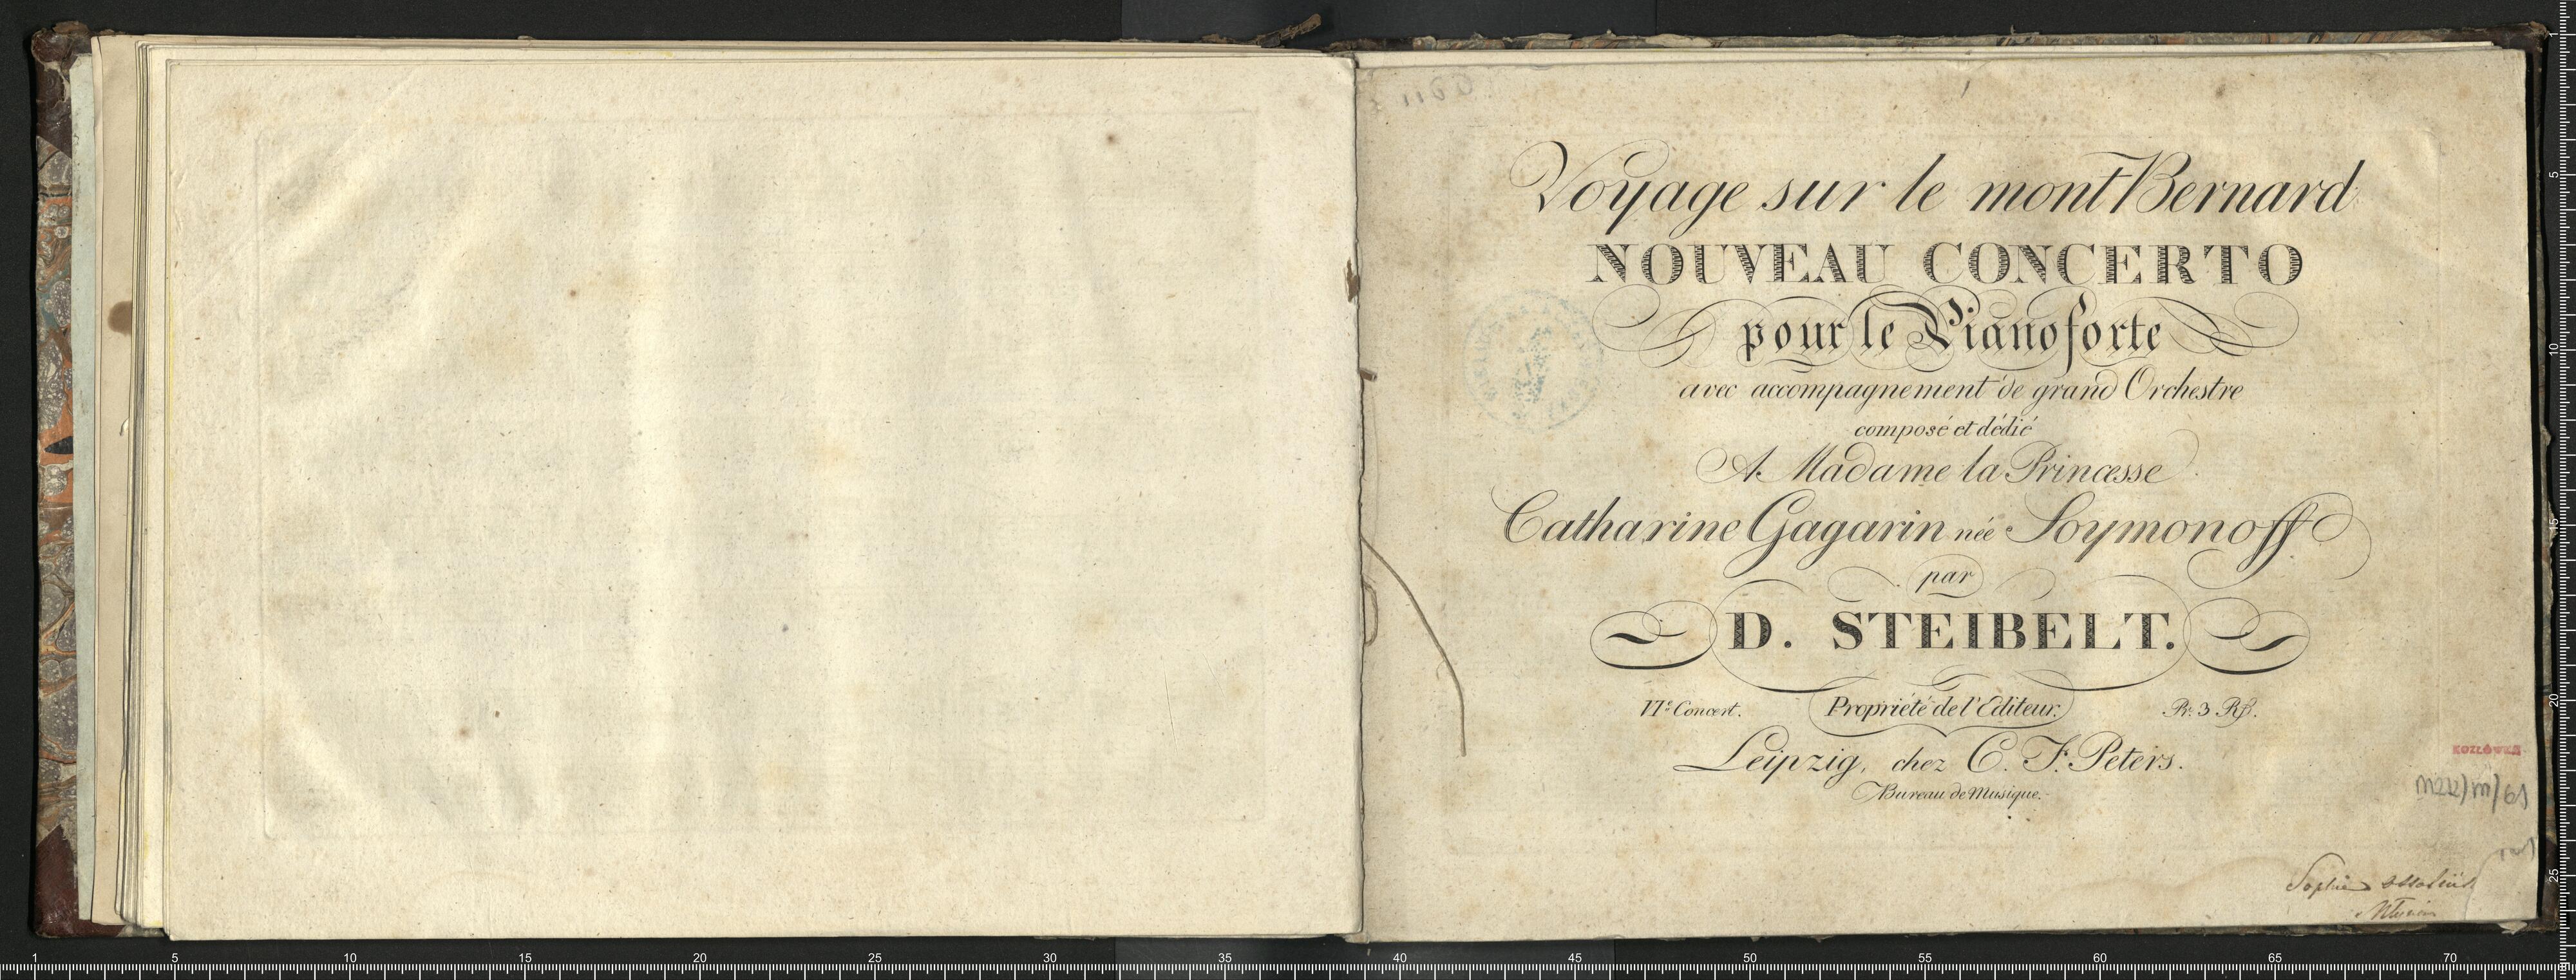 Voyage sur le mont Bernard
NOUVEAU CONCERTO
pour le Pianoforte
avec accompagnement de grand Orchestre
composé et dédié
A Madame la Princesse
Catharine Gagarin née Soymonoff
par
D. STEIBELT.
VIe Concert. Propriété de l'Editeur. Pr. 3 Rß.
Leipzig, chez C. F. Peters.
Bureau de Musique.
KOZŁÓWKA
Sophie
1 5 10 15 20 25 30 35 40 45 50 55 60 65 70
1
5
10
15
20
25